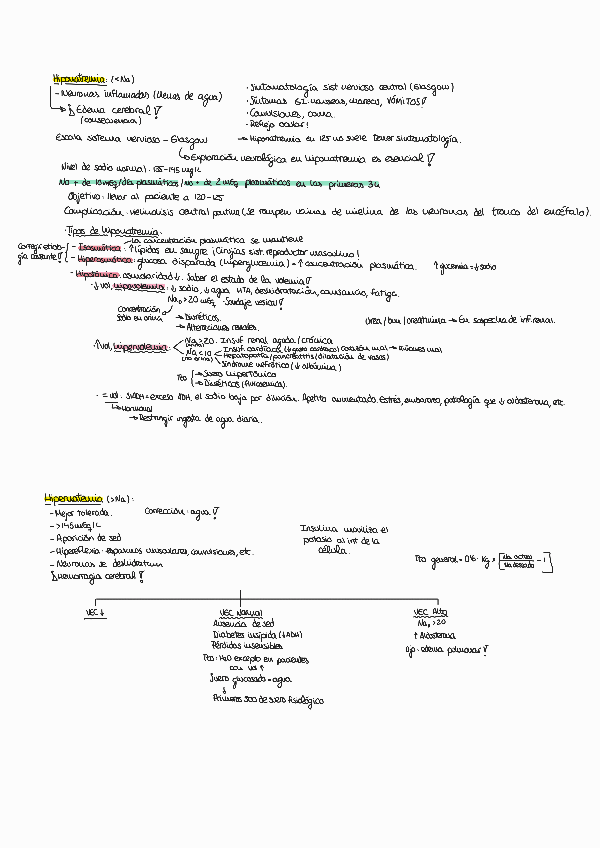 Hiponatremia: (<Na)
- Neuronas inflamadas (llenas de agua)
¡Edema cerebral!
(consecuencia)
· Sintomatología sist nervioso central (Glasgow)
· Síntomas G.I. nauseas, mareos, VÓMITOS!
· Convulsiones, coma
· Reflejo ocular!
Escala sistema nervioso - Glasgow → Hiponatremia en 125 no suele tener sintomatología.
Exploración neurológica en hiponatremia es esencial!
Nivel de sodio normal: 135-145 mg/L
No + de 10 mEq/día plasmáticos / No + de 2 mEq plasmáticos en las primeras 3h
Objetivo: llevar al paciente a 120-125
Complicación: mielinolisis central pontina (se rompen vainas de mielina de las neuronas del tronco del encéfalo).
· Tipos de hiponatremia:
la concentración plasmática se mantiene
Corregir etiología causante!
- Isosmótica: ↑ lípidos en sangre ¡Cirugías sist. reproductor masculino!
- Hiperosmótica: glucosa disparada (hiperglucemia) = ↑ concentración plasmática. ↑ glucemia = ↓ sodio
- Hipotónica: osmolaridad ↓. Saber el estado de la volemia!
· ↓ vol, hipovolemia: ↓ sodio, ↓ agua HTA, deshidratación, cansancio, fatiga.
Na >20 mEq · Sondaje vesical!
Concentración sodio en orina
→ Diuréticos.
→ Alteraciones renales.
Urea / bun / creatinina → En sospecha de inf. renal.
· ↑ vol, hipervolemia:
Na >20: Insuf renal aguda/crónica
(orina)
Na <10
(no orina)
Insuf. cardíaca (↓ gasto cardíaco) Corazón mal → riñones mal
Hepatopatía/pancreatitis (dilatación de vasos)
Síndrome nefrótico (↓ albúmina)
Tto
→ Suero hipertónico
→ Diuréticos (furosemida).
· = vol: SIADH = exceso ADH, el sodio baja por dilución. Apetito aumentado. Estrés, embarazo, patología que ↓ aldosterona, etc.
Hormonal
→ Restringir ingesta de agua diaria.
Hipernatremia (>Na):
- Mejor tolerada. Corrección: agua!
- >145 mEq/L
- Aparición de sed
- Hiperreflexia: espasmos musculares, convulsiones, etc.
- Neuronas se deshidratan
¡Hemorragia cerebral!
Insulina moviliza el
potasio al int de la
célula.
Tto general = 0'6 · Kg × [Na actual / Na deseado - 1]
VEC ↓
VEC Normal
Ausencia de sed
Diabetes insípida (↓ADH)
Pérdidas insensibles
Tto: H2O excepto en pacientes
con vol ↑
Suero glucosado = agua
↓
Primeros 500 de suero fisiológico
VEC Alto
Na >20
↑ Aldosterona
Ojo: edema pulmonar!